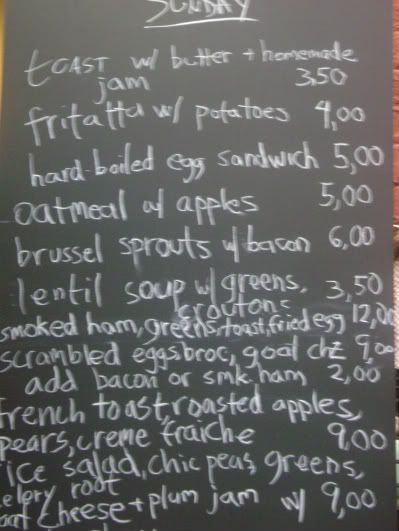 SUNDAY
toast w/ butter + homemade
jam 3,50
fritatta w/ potatoes 4,00
hard-boiled egg sandwich 5,00
oatmeal w/ apples 5,00
brussel sprouts w/ bacon 6,00
lentil soup w/ greens, 3,50
croutons
smoked ham, greens, toast, fried egg 12,00
scrambled eggs broc, goat chz 9,00
add bacon or smk. ham 2,00
french toast, roasted apples,
pears, creme fraiche 9,00
rice salad, chic peas, greens,
celery root
goat cheese + plum jam w/ 9,00